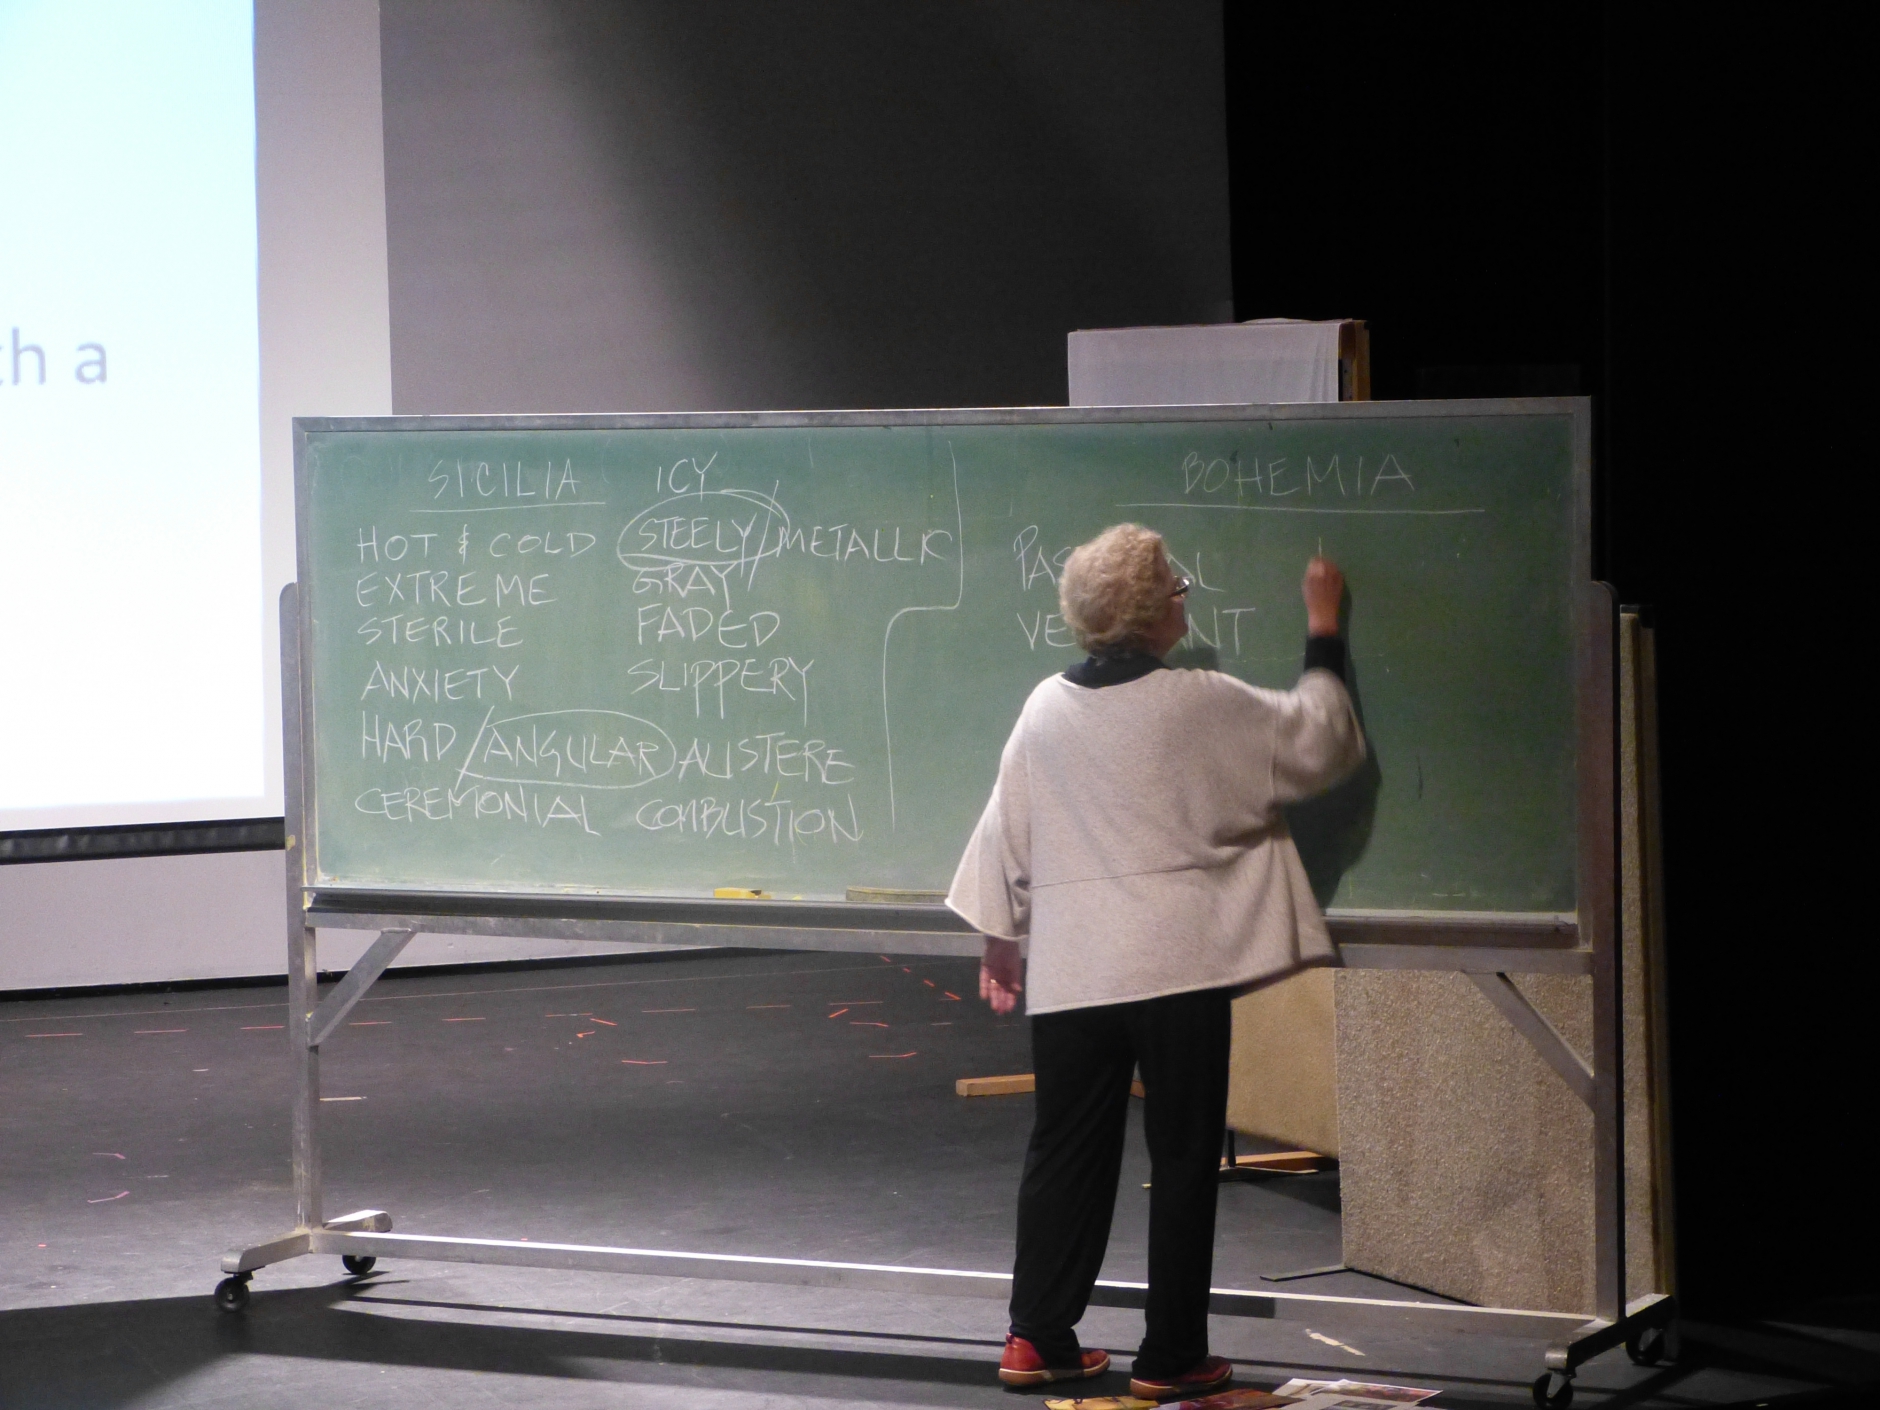 th a
SICILIA
HOT & COLD
EXTREME
STERILE
ANXIETY
HARD / ANGULAR
CEREMONIAL
ICY
STEELY / METALLIC
GRAY
FADED
SLIPPERY
AUSTERE
COMBUSTION
BOHEMIA